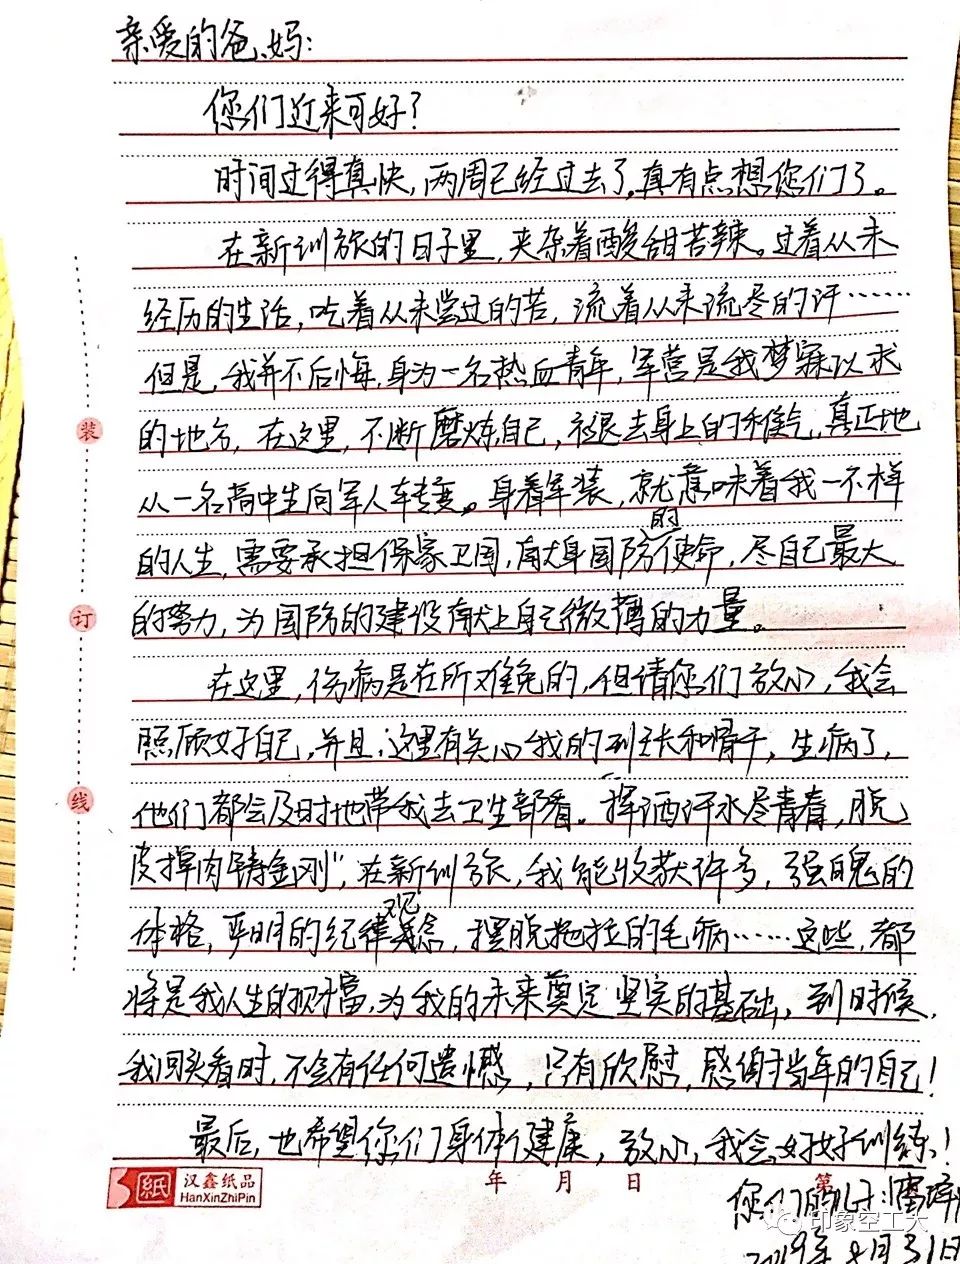 亲爱的爸、妈:
您们近来可好?
时间过得真快,两周已经过去了,真有点想您们了。
在新训旅的日子里,夹杂着酸甜苦辣。过着从未
经历的生活,吃着从未尝过的苦,流着从未流尽的汗……
但是,我并不后悔,身为一名热血青年,军营是我梦寐以求
的地方,在这里,不断磨炼自己,褪去身上的稚气,真正地
从一名高中生向军人转变。身着军装,就意味着我不一样
的人生,需要承担保家卫国,献身国防的使命,尽自己最大
的努力,为国防的建设献上自己微薄的力量。
在这里,伤病是在所难免的,但请您们放心,我会
照顾好自己,并且,这里有关心我的班长和骨干,生病了,
他们都会及时地带我去卫生部看。挥洒汗水尽青春,脱
皮掉肉铸金刚",在新训旅,我能收获许多,强魄的
体格,严明的纪律观念,摆脱拖拉的毛病……这些,都
将是我人生的财富,为我的未来奠定坚实的基础,到时候,
我回头看时,不会有任何遗憾,只有欣慰,感谢当年的自己!
最后,也希望您们身体健康,放心,我会好好训练!
装
订
线
纸
汉鑫纸品
HanXinZhiPin
年 月 日
第
您们的儿子:
2019年8月31日
印象空工大